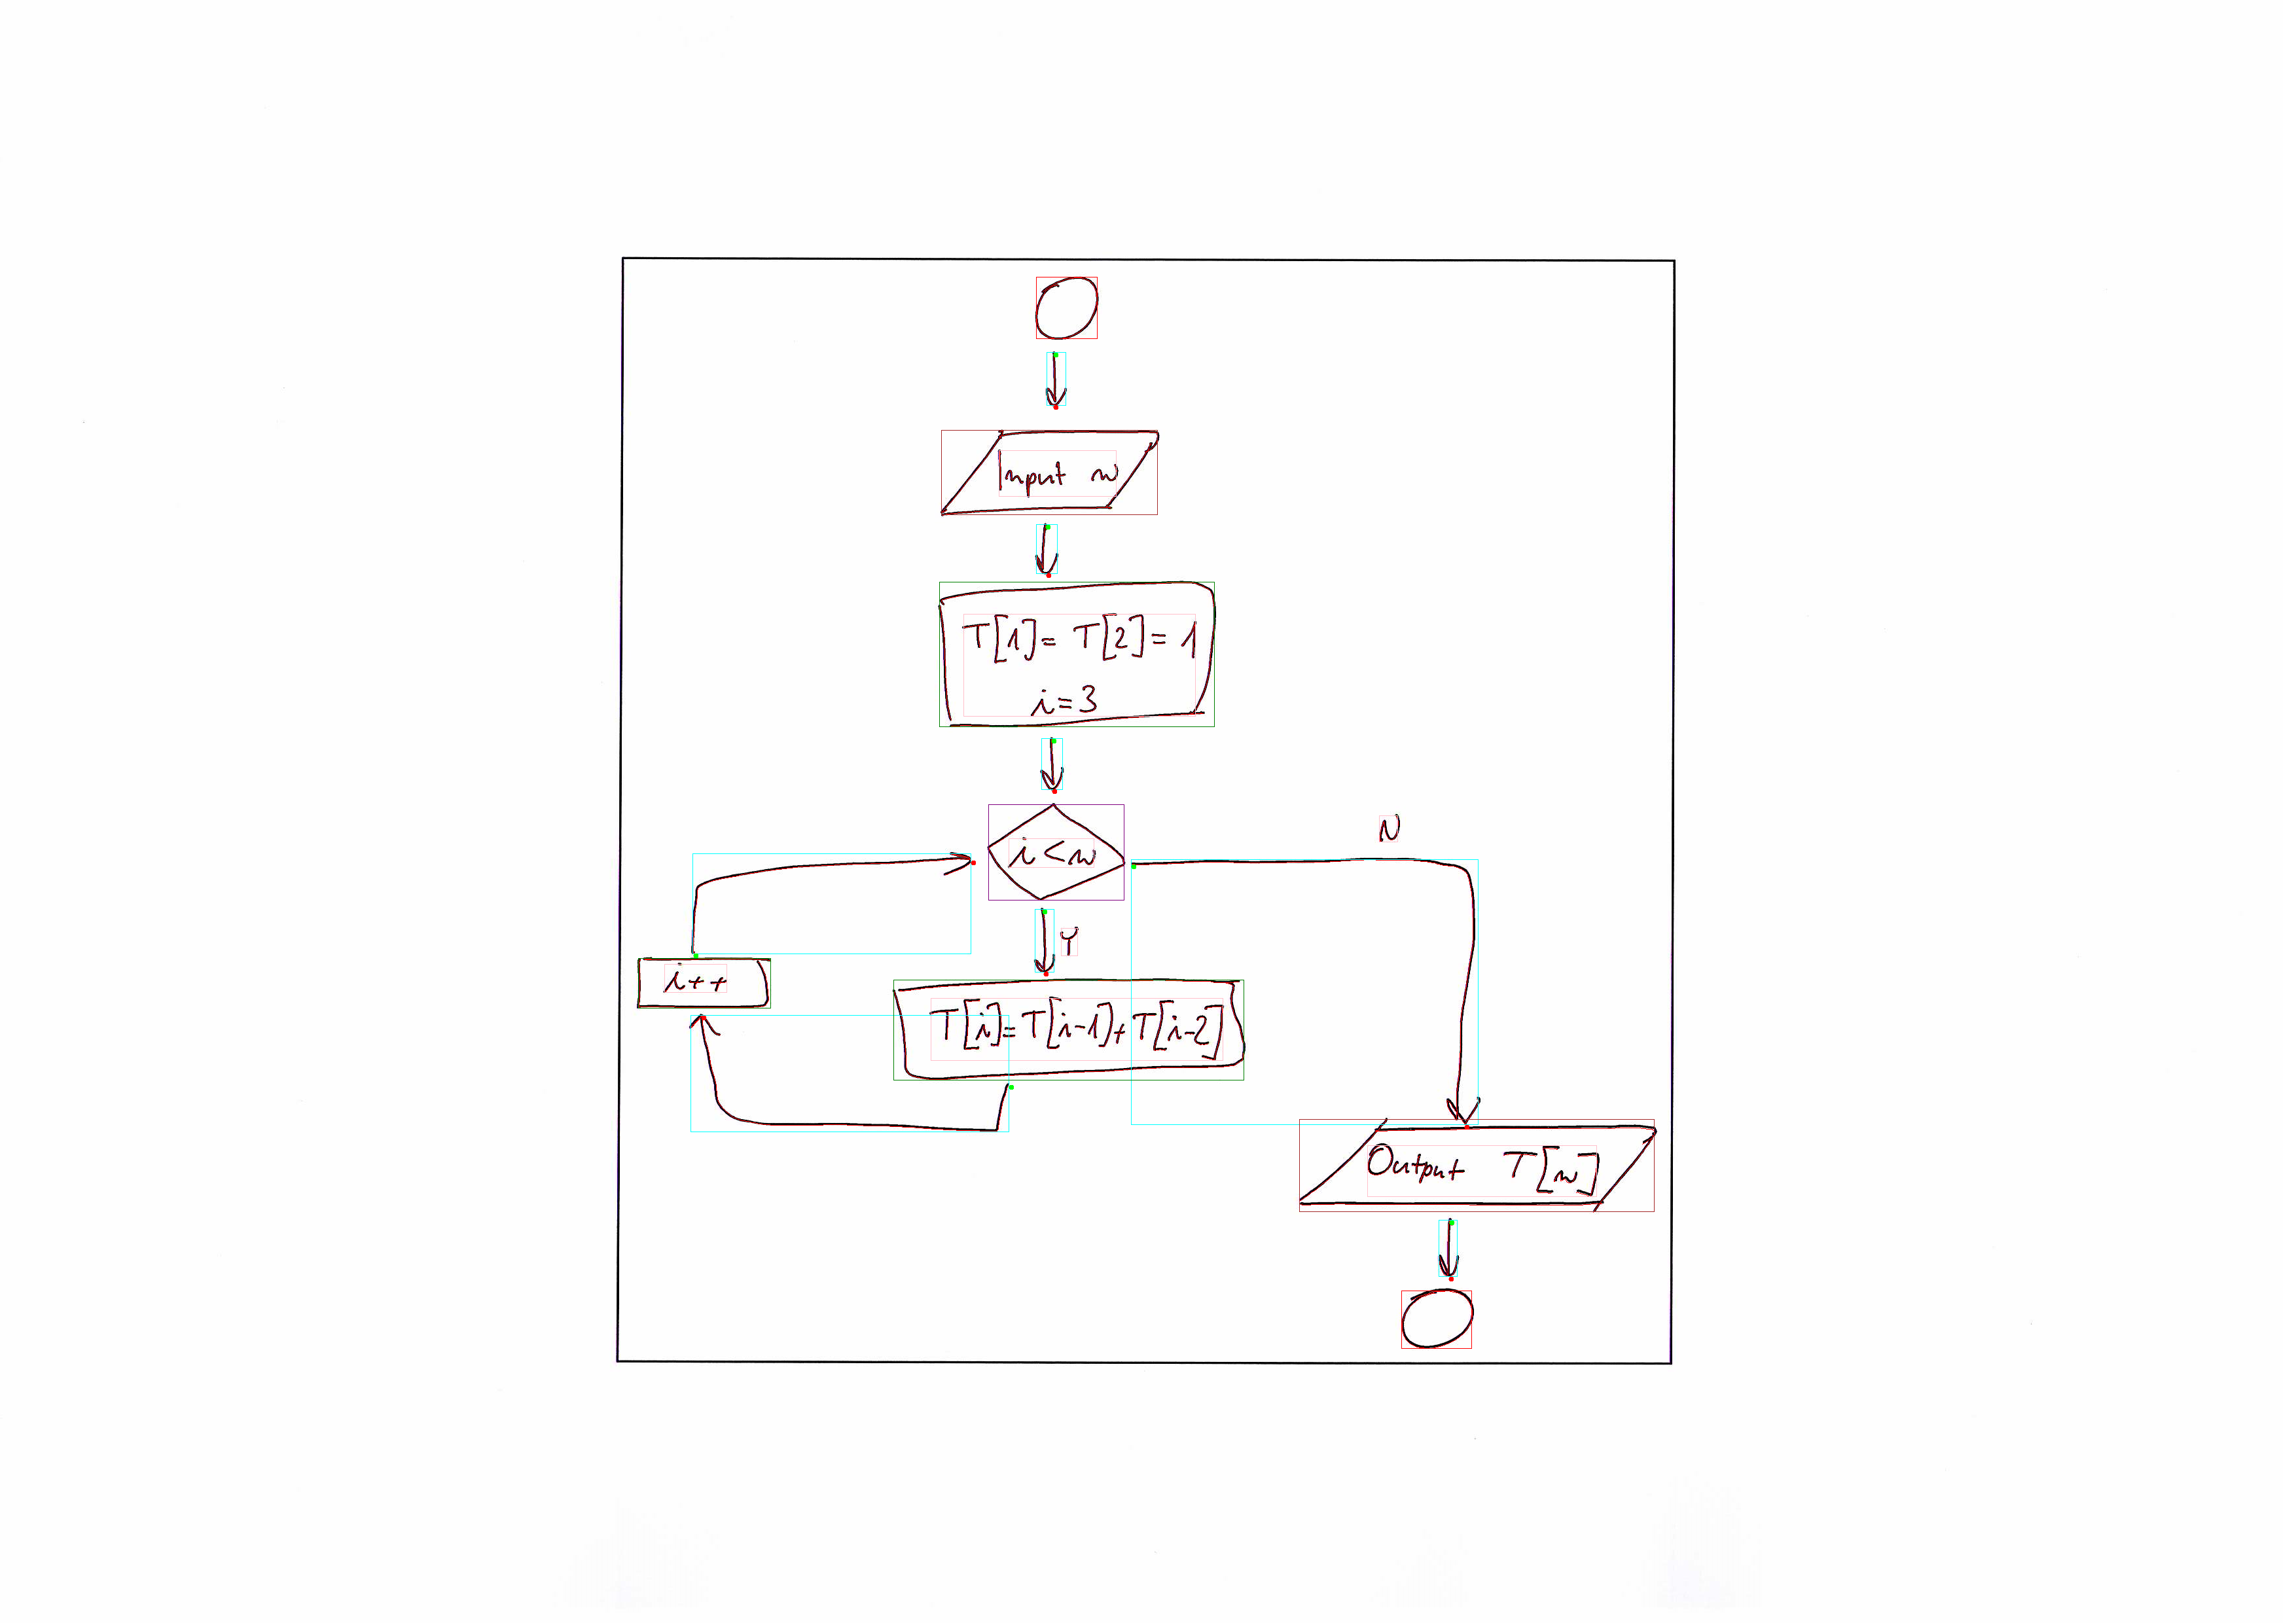 Input n
T[1]= T[2]= 1
i=3
N
i<n
Y
i++
T[i]=T[i-1]+T[i-2]
Output T[n]